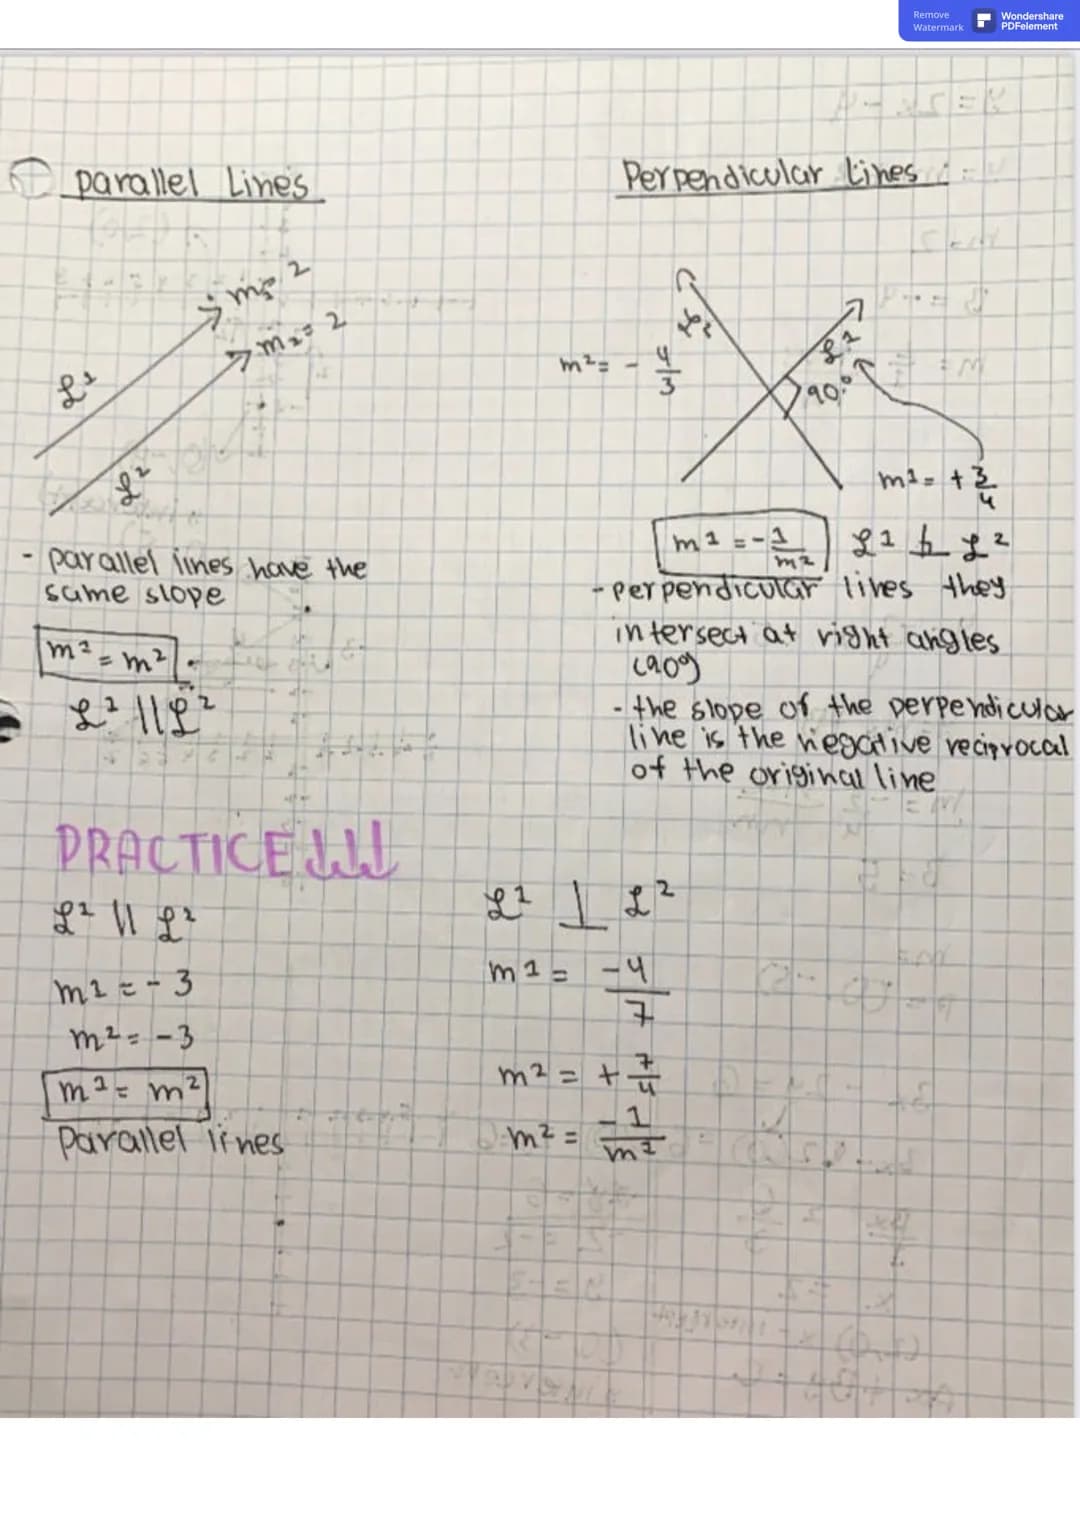 Remove
Watermark
Wondershare
PDFelement
Parallel Lines
m₁= 2
m₂= 2
L¹
L²
- parallel lines have the
same slope
m² = m²
L² || L²
Perpendicular Lines
L₂
L²
m²= - 4/3
90°
m¹= + 3/4
m¹ = - 1/m²
L¹ ⊥ L²
- perpendicular lines they
intersect at right angles
(90°)
- the slope of the perpendicular
line is the negative reciprocal
of the original line
PRACTICE
L² || L²
m1 = - 3
m² = -3
m² = m²
Parallel lines
L² ⊥ L²
m1 = -4/7
m² = + 7/4
m² = -1/m²